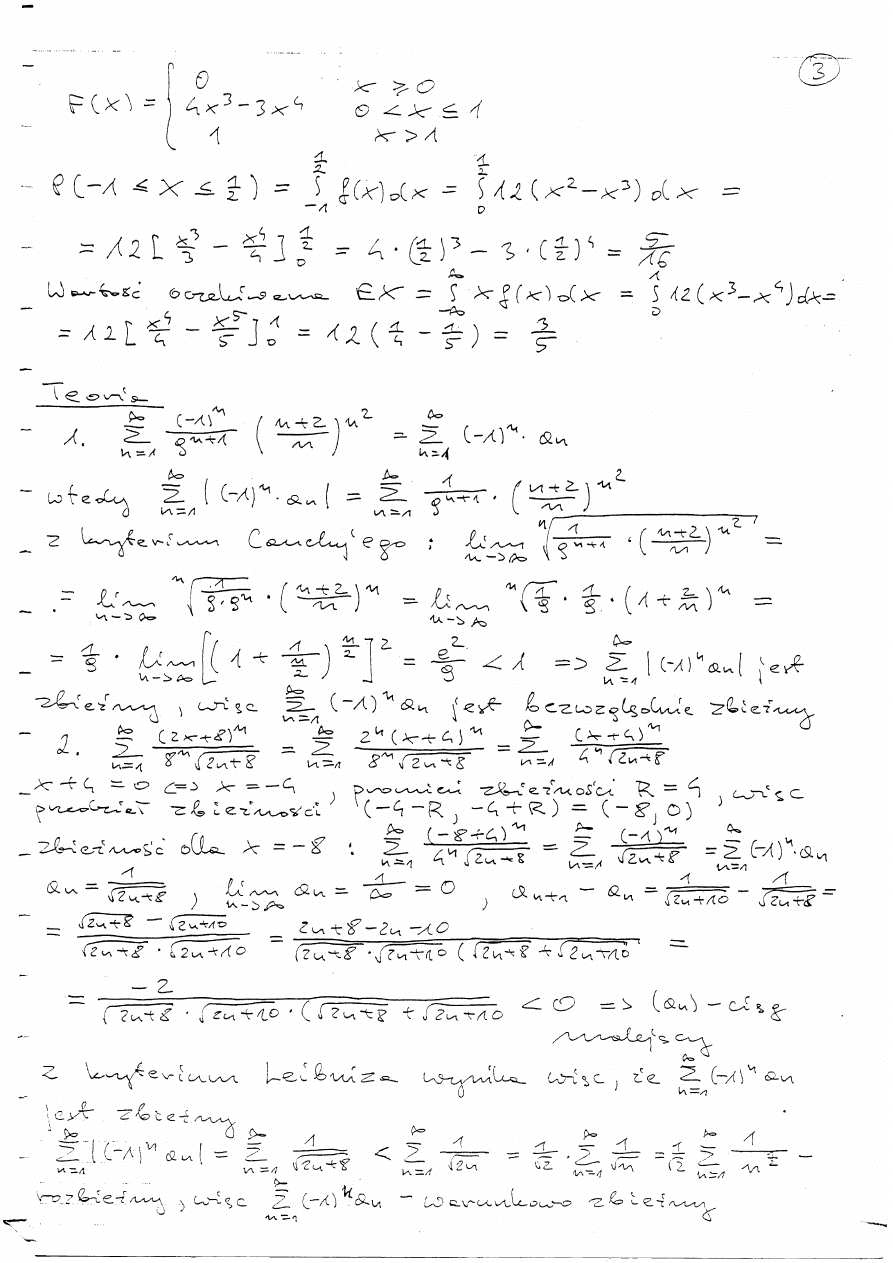 3
F(x) = { 0   x ≥ 0
4x³ - 3x⁴   0 < x ≤ 1
1   x > 1
P(-1 ≤ X ≤ 1/2) = ∫_{-1}^{1/2} f(x)dx = ∫_0^{1/2} 12(x² - x³)dx =
= 12[x³/3 - x⁴/4]_0^{1/2} = 4·(1/2)³ - 3·(1/2)⁴ = 5/16
Wartość oczekiwana EX = ∫_{-∞}^{∞} x f(x)dx = ∫_0^1 12(x³ - x⁴)dx =
= 12[x⁴/4 - x⁵/5]_0^1 = 12(1/4 - 1/5) = 3/5
Teoria
1. ∑_{n=1}^{∞} (-1)ⁿ/9^{n+1} ((n+2)/n)^{n²} = ∑_{n=1}^{∞} (-1)ⁿ · an
wtedy ∑_{n=1}^{∞} |(-1)ⁿ · an| = ∑_{n=1}^{∞} 1/9^{n+1} · ((n+2)/n)^{n²}
z kryterium Cauchy'ego : lim_{n->∞} ⁿ√(1/9^{n+1} · ((n+2)/n)^{n²}) =
= lim_{n->∞} ⁿ√(1/(9·9ⁿ)) · ((n+2)/n)ⁿ = lim_{n->∞} ⁿ√(1/9) · 1/9 · (1 + 2/n)ⁿ =
= 1/9 · lim_{n->∞} [(1 + 1/(n/2))^{n/2}]² = e²/9 < 1 => ∑_{n=1}^{∞} |(-1)ⁿ an| jest
zbieżny, więc ∑_{n=1}^{∞} (-1)ⁿ an jest bezwzględnie zbieżny
2. ∑_{n=1}^{∞} (2x+8)ⁿ/(8ⁿ√(2n+8)) = ∑_{n=1}^{∞} 2ⁿ(x+4)ⁿ/(8ⁿ√(2n+8)) = ∑_{n=1}^{∞} (x+4)ⁿ/(4ⁿ√(2n+8))
x+4 = 0 <=> x = -4 , promień zbieżności R = 4 , więc
przedział zbieżności (-4-R, -4+R) = (-8, 0)
zbieżność dla x = -8 : ∑_{n=1}^{∞} (-8+4)ⁿ/(4ⁿ√(2n+8)) = ∑_{n=1}^{∞} (-1)ⁿ/√(2n+8) = ∑_{n=1}^{∞} (-1)ⁿ·an
an = 1/√(2n+8) , lim_{n->∞} an = 1/∞ = 0 , a_{n+1} - an = 1/√(2n+10) - 1/√(2n+8) =
= (√(2n+8) - √(2n+10))/(√(2n+8) · √(2n+10)) = (2n+8-2n-10)/(√(2n+8) · √(2n+10) (√(2n+8) + √(2n+10) =
= -2/(√(2n+8) · √(2n+10) · (√(2n+8) + √(2n+10) < 0 => (an) - ciąg
malejący
z kryterium Leibniza wynika więc, że ∑_{n=1}^{∞} (-1)ⁿ an
jest zbieżny
∑_{n=1}^{∞} |(-1)ⁿ an| = ∑_{n=1}^{∞} 1/√(2n+8) < ∑_{n=1}^{∞} 1/√(2n) = 1/√2 · ∑_{n=1}^{∞} 1/√n = 1/√2 ∑_{n=1}^{∞} 1/n^{1/2} -
rozbieżny, więc ∑_{n=1}^{∞} (-1)ⁿ an - warunkowo zbieżny